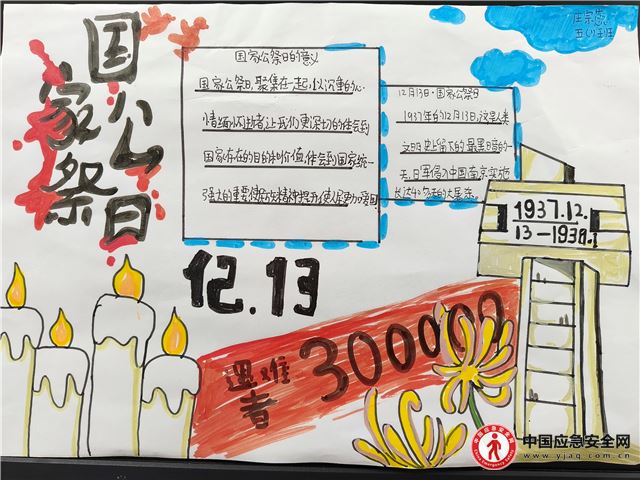 国家公祭日
国家公祭日的意义
国家公祭日,聚集在一起,以沉重的心
情缅怀逝者,让我们更深切的体会到
国家存在的目的和价值,体会到国家统一
强大的重要使命,在精神提升,使人民更加爱国
12月13日·国家公祭日
1937年的12月13日,这是人类
文明史上留下的最黑暗的一
天,日军侵入中国南京实施
长达40多天的大屠杀。
12.13
遇难者
300000
1937.12.
13-1938.1
中国应急安全网
www.yjaq.com.cn